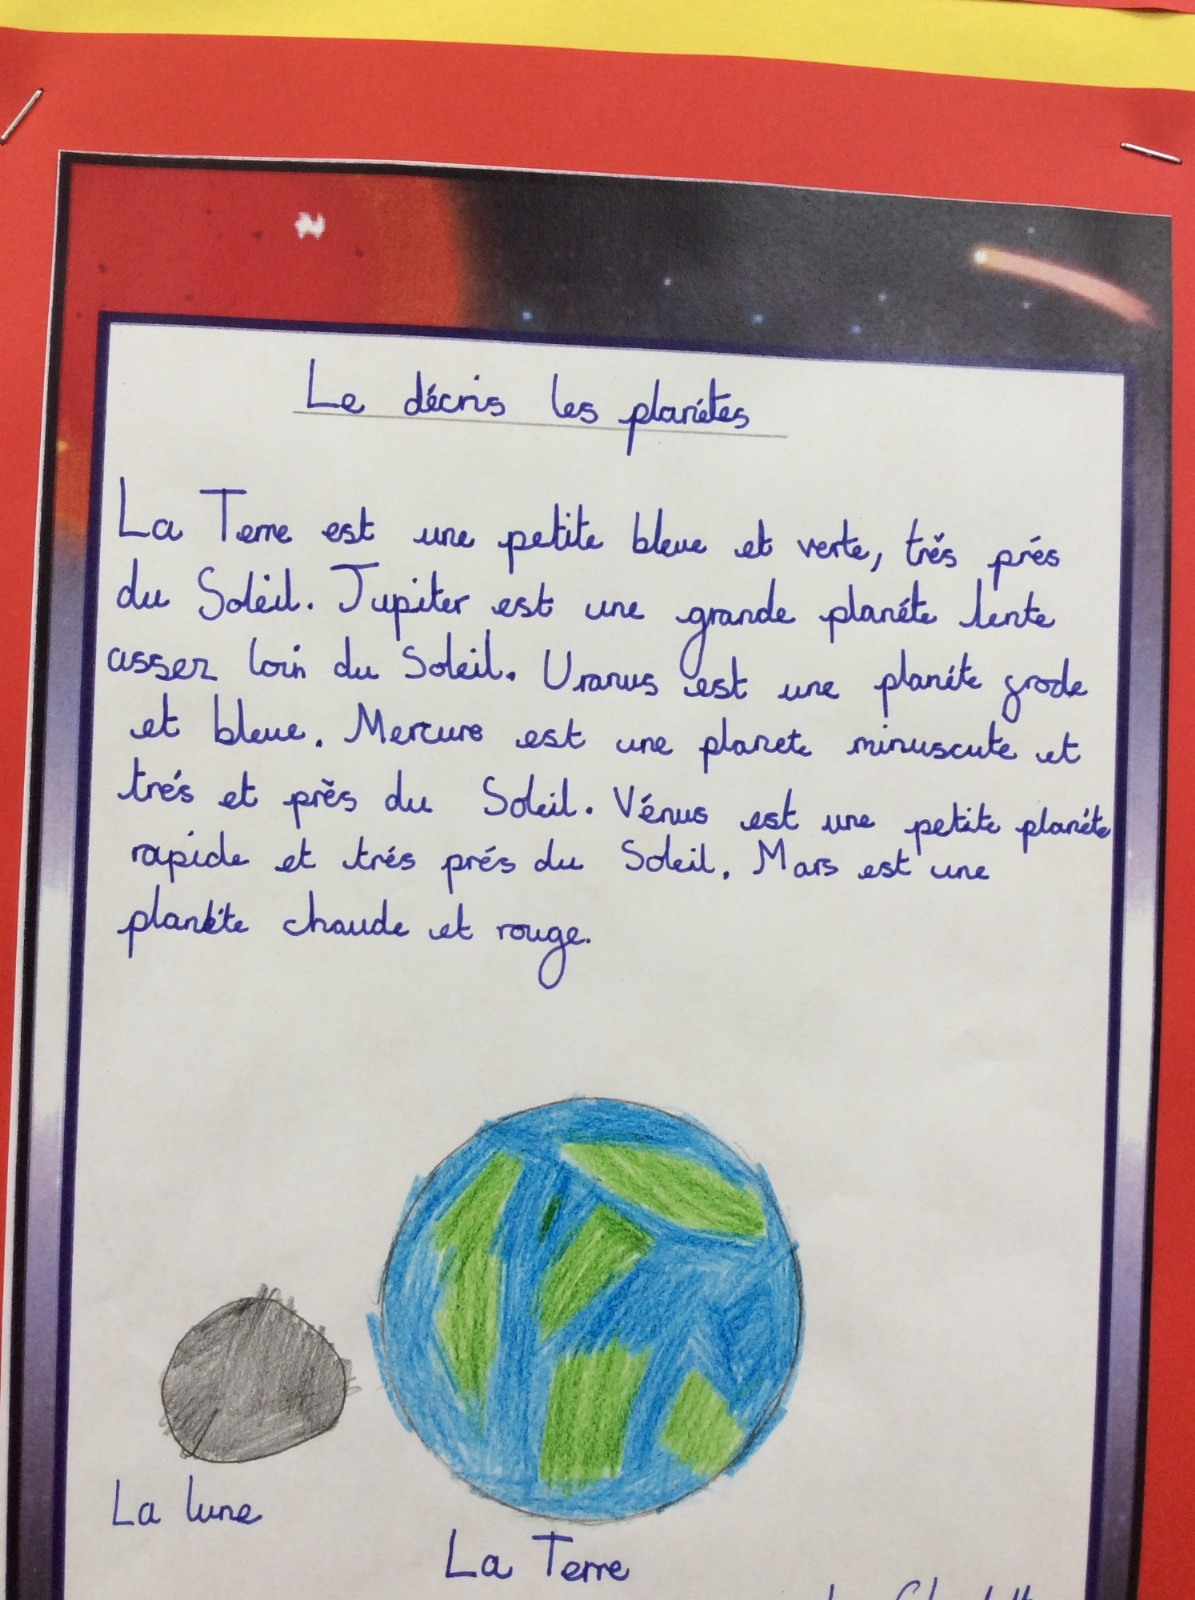 Le décris les planétes
La Terre est une petite bleue et verte, trés prés
du Soleil. Jupiter est une grande planéte lente
assez loin du Soleil. Uranus est une planéte grode
et bleue. Mercure est une planete minuscute et
trés et près du Soleil. Vénus est une petite planéte
rapide et trés prés du Soleil. Mars est une
planète chaude et rouge.
La lune
La Terre